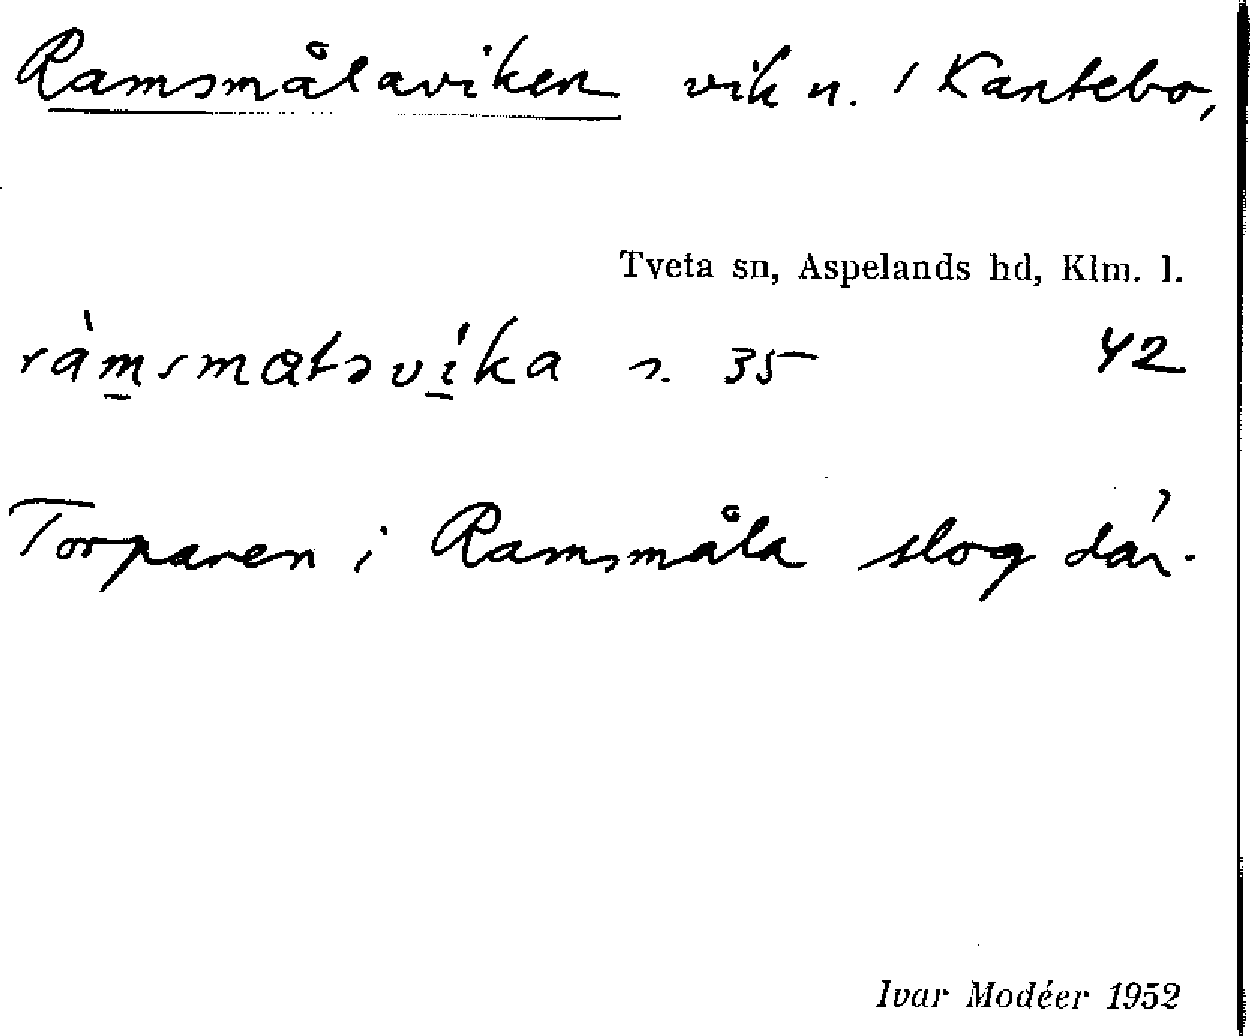 Ramsmålaviken vik n. i Kantebo,
Tveta sn, Aspelands hd, Klm. l.
n. 35 42
Torparen i Ramsmåla slog där.
Ivar Modéer 1952